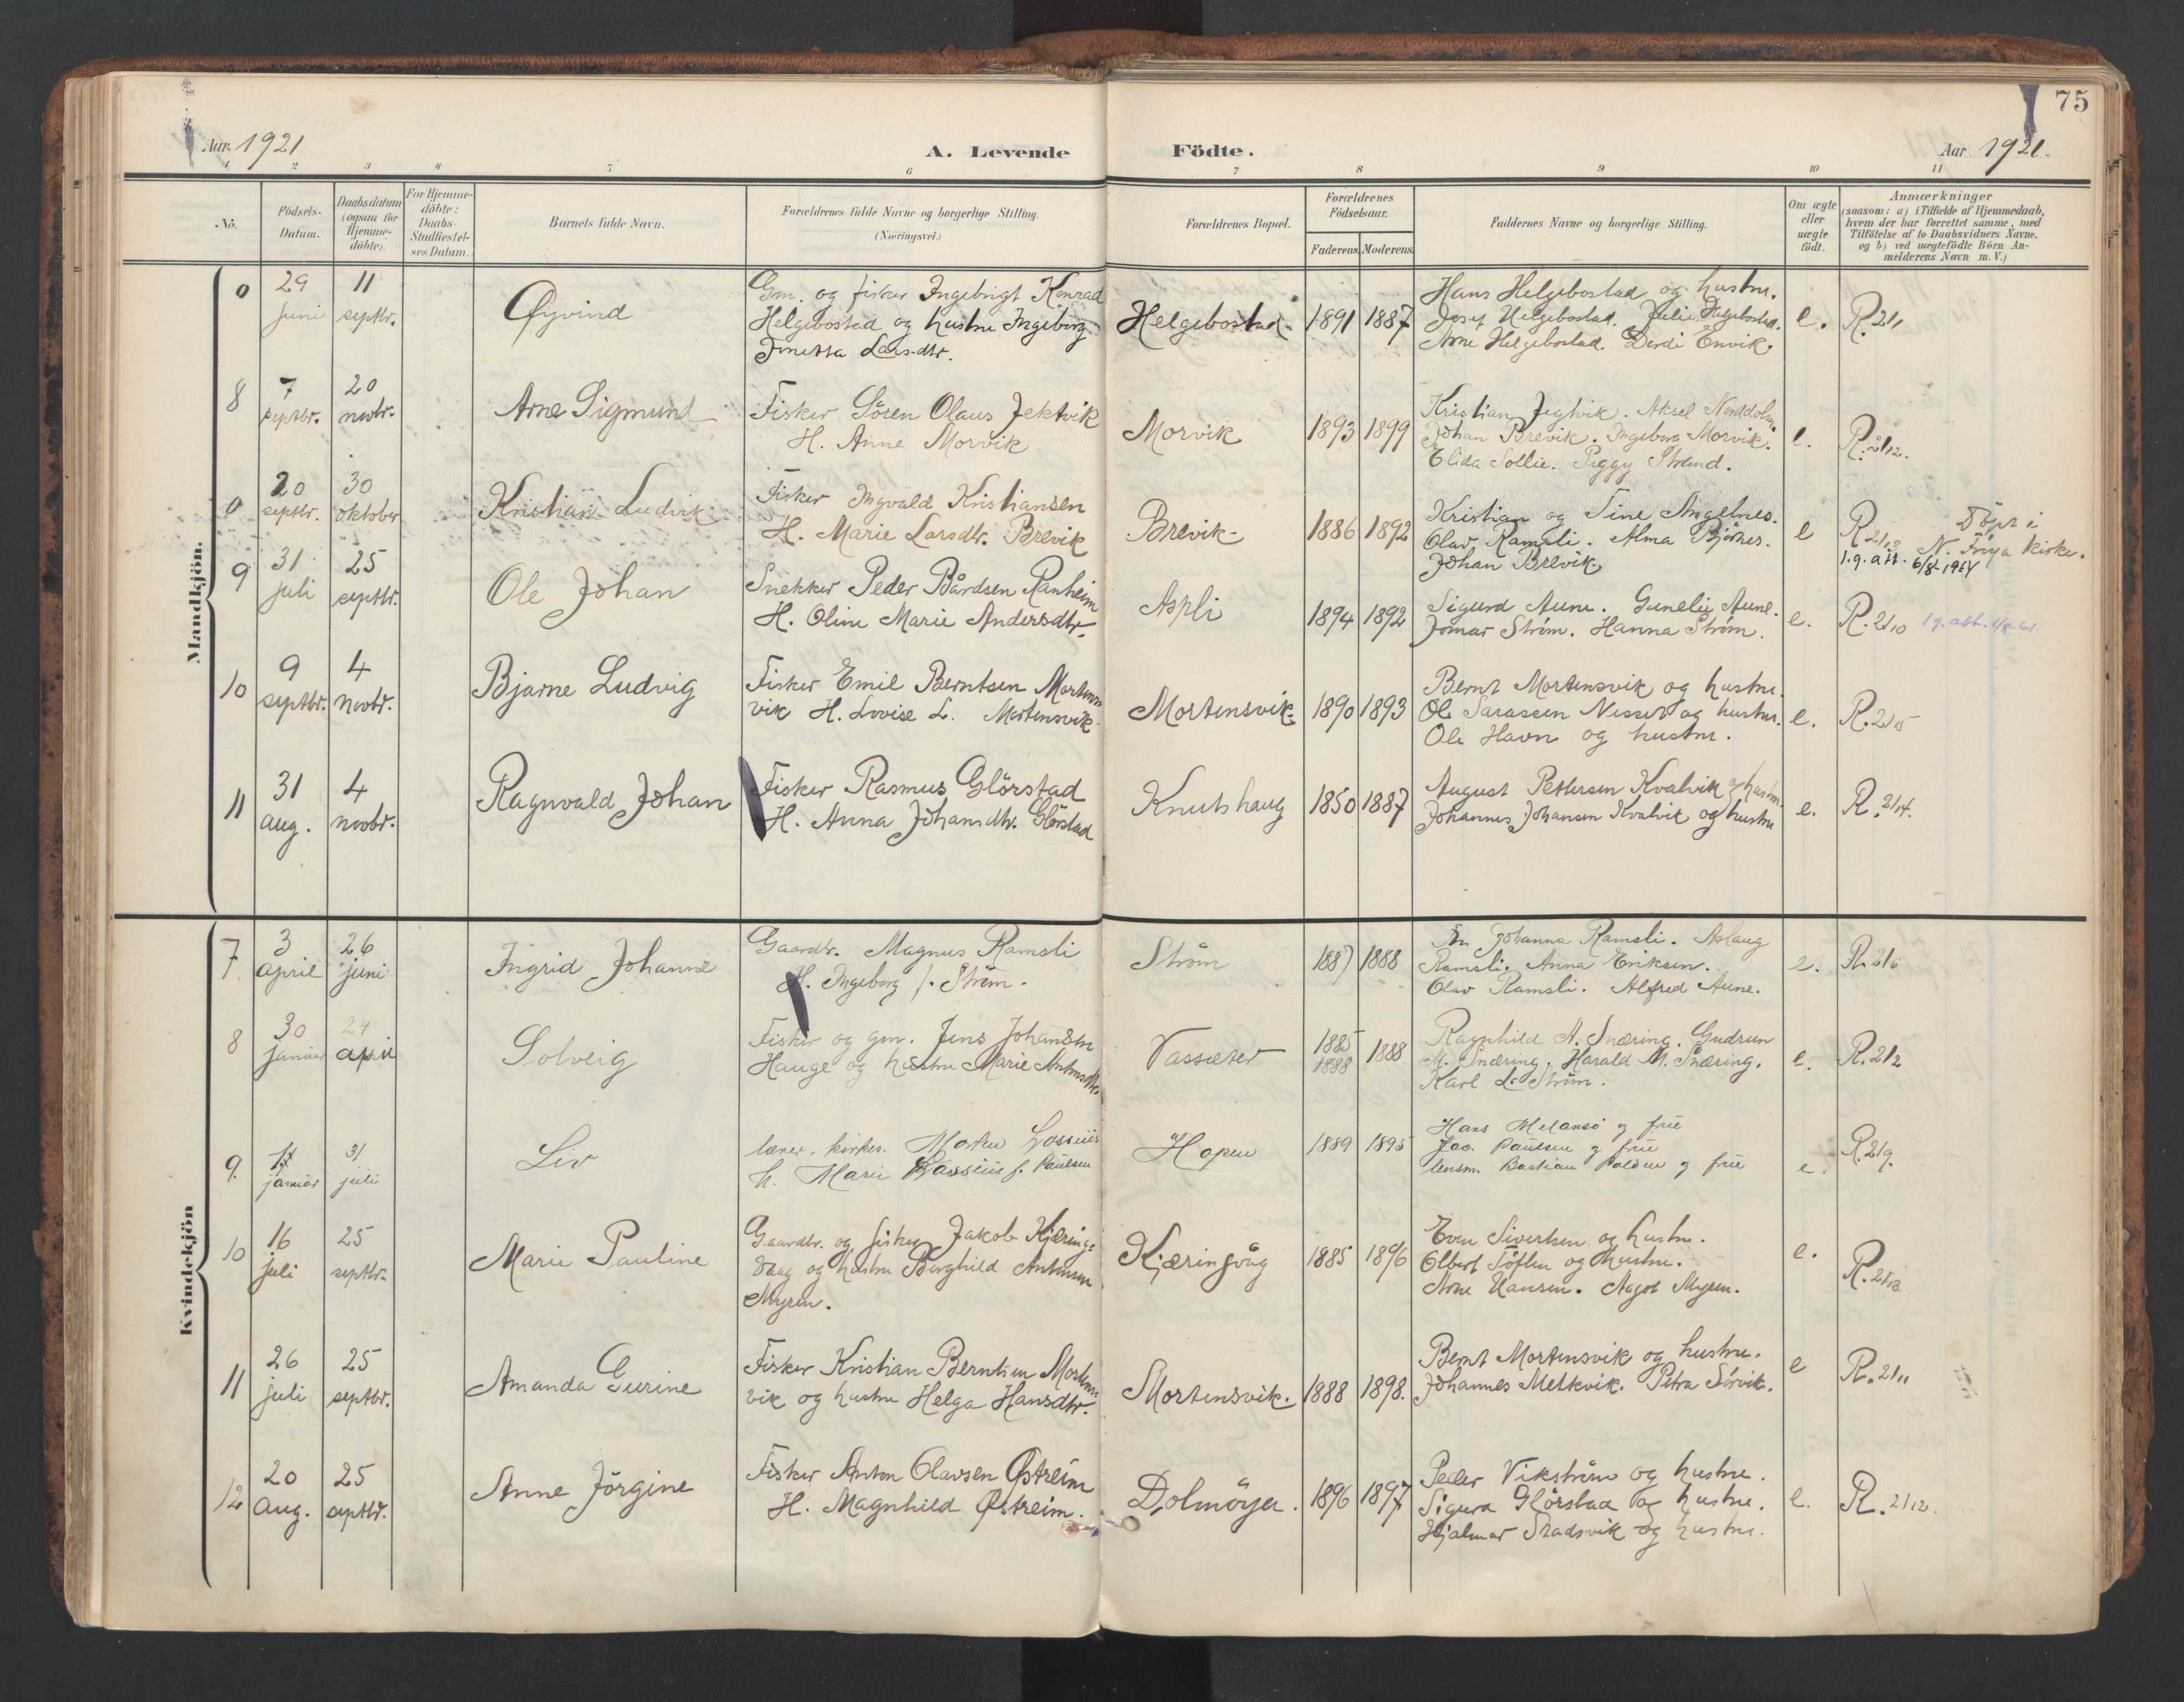 75
Aar 1921
A. Levende Födte.
Aar 1921.
1 2 3 4 5 6 7 8 9 10 11
No.
Födsels-
Datum.
Daabsdatum
(ogsaa for
Hjemme-
döbte).
For Hjemme-
döbte:
Daabs-
Stadfæstel-
ses Datum.
Barnets fulde Navn.
Forældrenes fulde Navne og borgerlige Stilling.
(Næringsvei.)
Forældrenes Bopæl.
Forældrenes
Födselsaar.
Faderens. Moderens.
Faddernes Navne og borgerlige Stilling.
Om ægte
eller
uægte
födt.
Anmærkninger
(saasom: a) i Tilfælde af Hjemmedaab,
hvem der har forrettet samme, med
Tilföielse af to Daabsvidners Navne.
og b) ved uægtefödte Börn An-
melderens Navn m. V.)
Mandkjön.
0
29
juni
11
septbr.
Øyvind
Gm. og fisker Ingebrigt Konrad
Helgebostad og hustru Ingeborg
Larsdtr.
Helgebostad.
1891 1887
Hans Helgebostad og hustru.
Josef Helgebostad. Julie Helgebostad.
Arne Helgebostad. Envik.
e.
R. 21/1
8
7
septbr.
20
novbr.
Arne Sigmund
Fisker Sören Olaus Jektvik
H. Anne Morvik
Morvik
1893 1899
Kristian Jegtvik. Aksel
Johan Brevik. Ingeborg Morvik.
Elida Sollie. Peggy Strand.
e.
R. 21/12.
0
20
septbr.
30
oktober
Kristian Ludvik
Fisker Ingvald Kristiansen
H. Marie Larsdtr. Brevik
Brevik.
1886 1892
Kristian og Tine Angelnes.
Olav Ramsli. Alma Björnes.
Johan Brevik
e
R. 21/13 Döpt i
N. Fröya Kirke.
1.g. att. 6/8-1964
9
31
juli
25
septbr.
Ole Johan
Snekker Peder Bårdsen Ranheim
H. Oline Marie Andersdtr.
Aspli
1894 1892
Sigurd Aune. Gunelie Aune.
Jomar Ström. Hanna Ström.
e.
R. 21/10 1 g. att.
10
9
septbr.
4
novbr.
Bjarne Ludvig
Fisker Emil Berntsen Mortens
vik H. Lovise L. Mortensvik.
Mortensvik.
1890 1893
Bernt Mortensvik og hustru.
Ole Sarassen Nesset og hustru.
Ole Havn og hustru.
e.
R. 21/15
11
31
aug.
4
novbr.
Ragnvald Johan
Fisker Rasmus Glörstad
H. Anna Johansdtr. Glörstad
Knutshaug
1850 1887
August Pettersen Kvalvik og hustru.
Johannes Johansen Kvalvik og hustru
e.
R. 21/14.
Kvindekjön
7
3
april
26
juni
Ingrid Johanne
Gaardbr. Magnus Ramsli
H. Ingeborg f. Ström.
Ström
1887 1888
Johanna Ramsli. Aslaug
Ramsli. Anna Eriksen.
Olav Ramsli. Alfred Aune.
e.
R. 21/6
8
30
januar
24
april
Solveig
Fisker og gm. Jens Johansen
Hauge og hustru Marie
Vassæter
1885
1888
1888
Ragnhild A. Snæring. Gudrun
M. Snæring. Harald M. Snæring.
Karl L. Ström.
e.
R. 21/2
9.
januar
31
juli
Liv
lærer, kirkes. Morten Lossius
h. Marie Lossius f. Paulsen
Hopen
1889 1895
Hans Melansö og frue
Jac. Paulsen og frue
lensm. Bastian og frue
e.
R. 21/9.
10
16
juli
25
septbr.
Marie Pauline
Gaardbr. og fisker Jakob Kjærings
vaag og hustru Borghild Antonsen
Myren.
Kjæringvåg
1885 1896
Even Sivertsen og hustru.
Elbert Töften og hustru.
Arne Hansen. Aagot Myren.
e.
R. 21/13
11
26
juli
25
septbr.
Amanda Gurine
Fisker Kristian Berntsen Mortens
vik og hustru Helga Hansdtr.
Mortensvik.
1888 1898.
Bernt Mortensvik og hustru.
Johannes Melkvik. Petra Sörvik.
e
R. 21/11
12
20
aug.
25
septbr.
Anne Jörgine
Fisker Anton Olavsen Østreim
H. Magnhild Østreim.
Dolmöya.
1896 1897
Peder Vikström og hustru.
Sigurd Glörstad og hustru.
Hjalmar Stadsvik og hustru.
e.
R. 21/12.